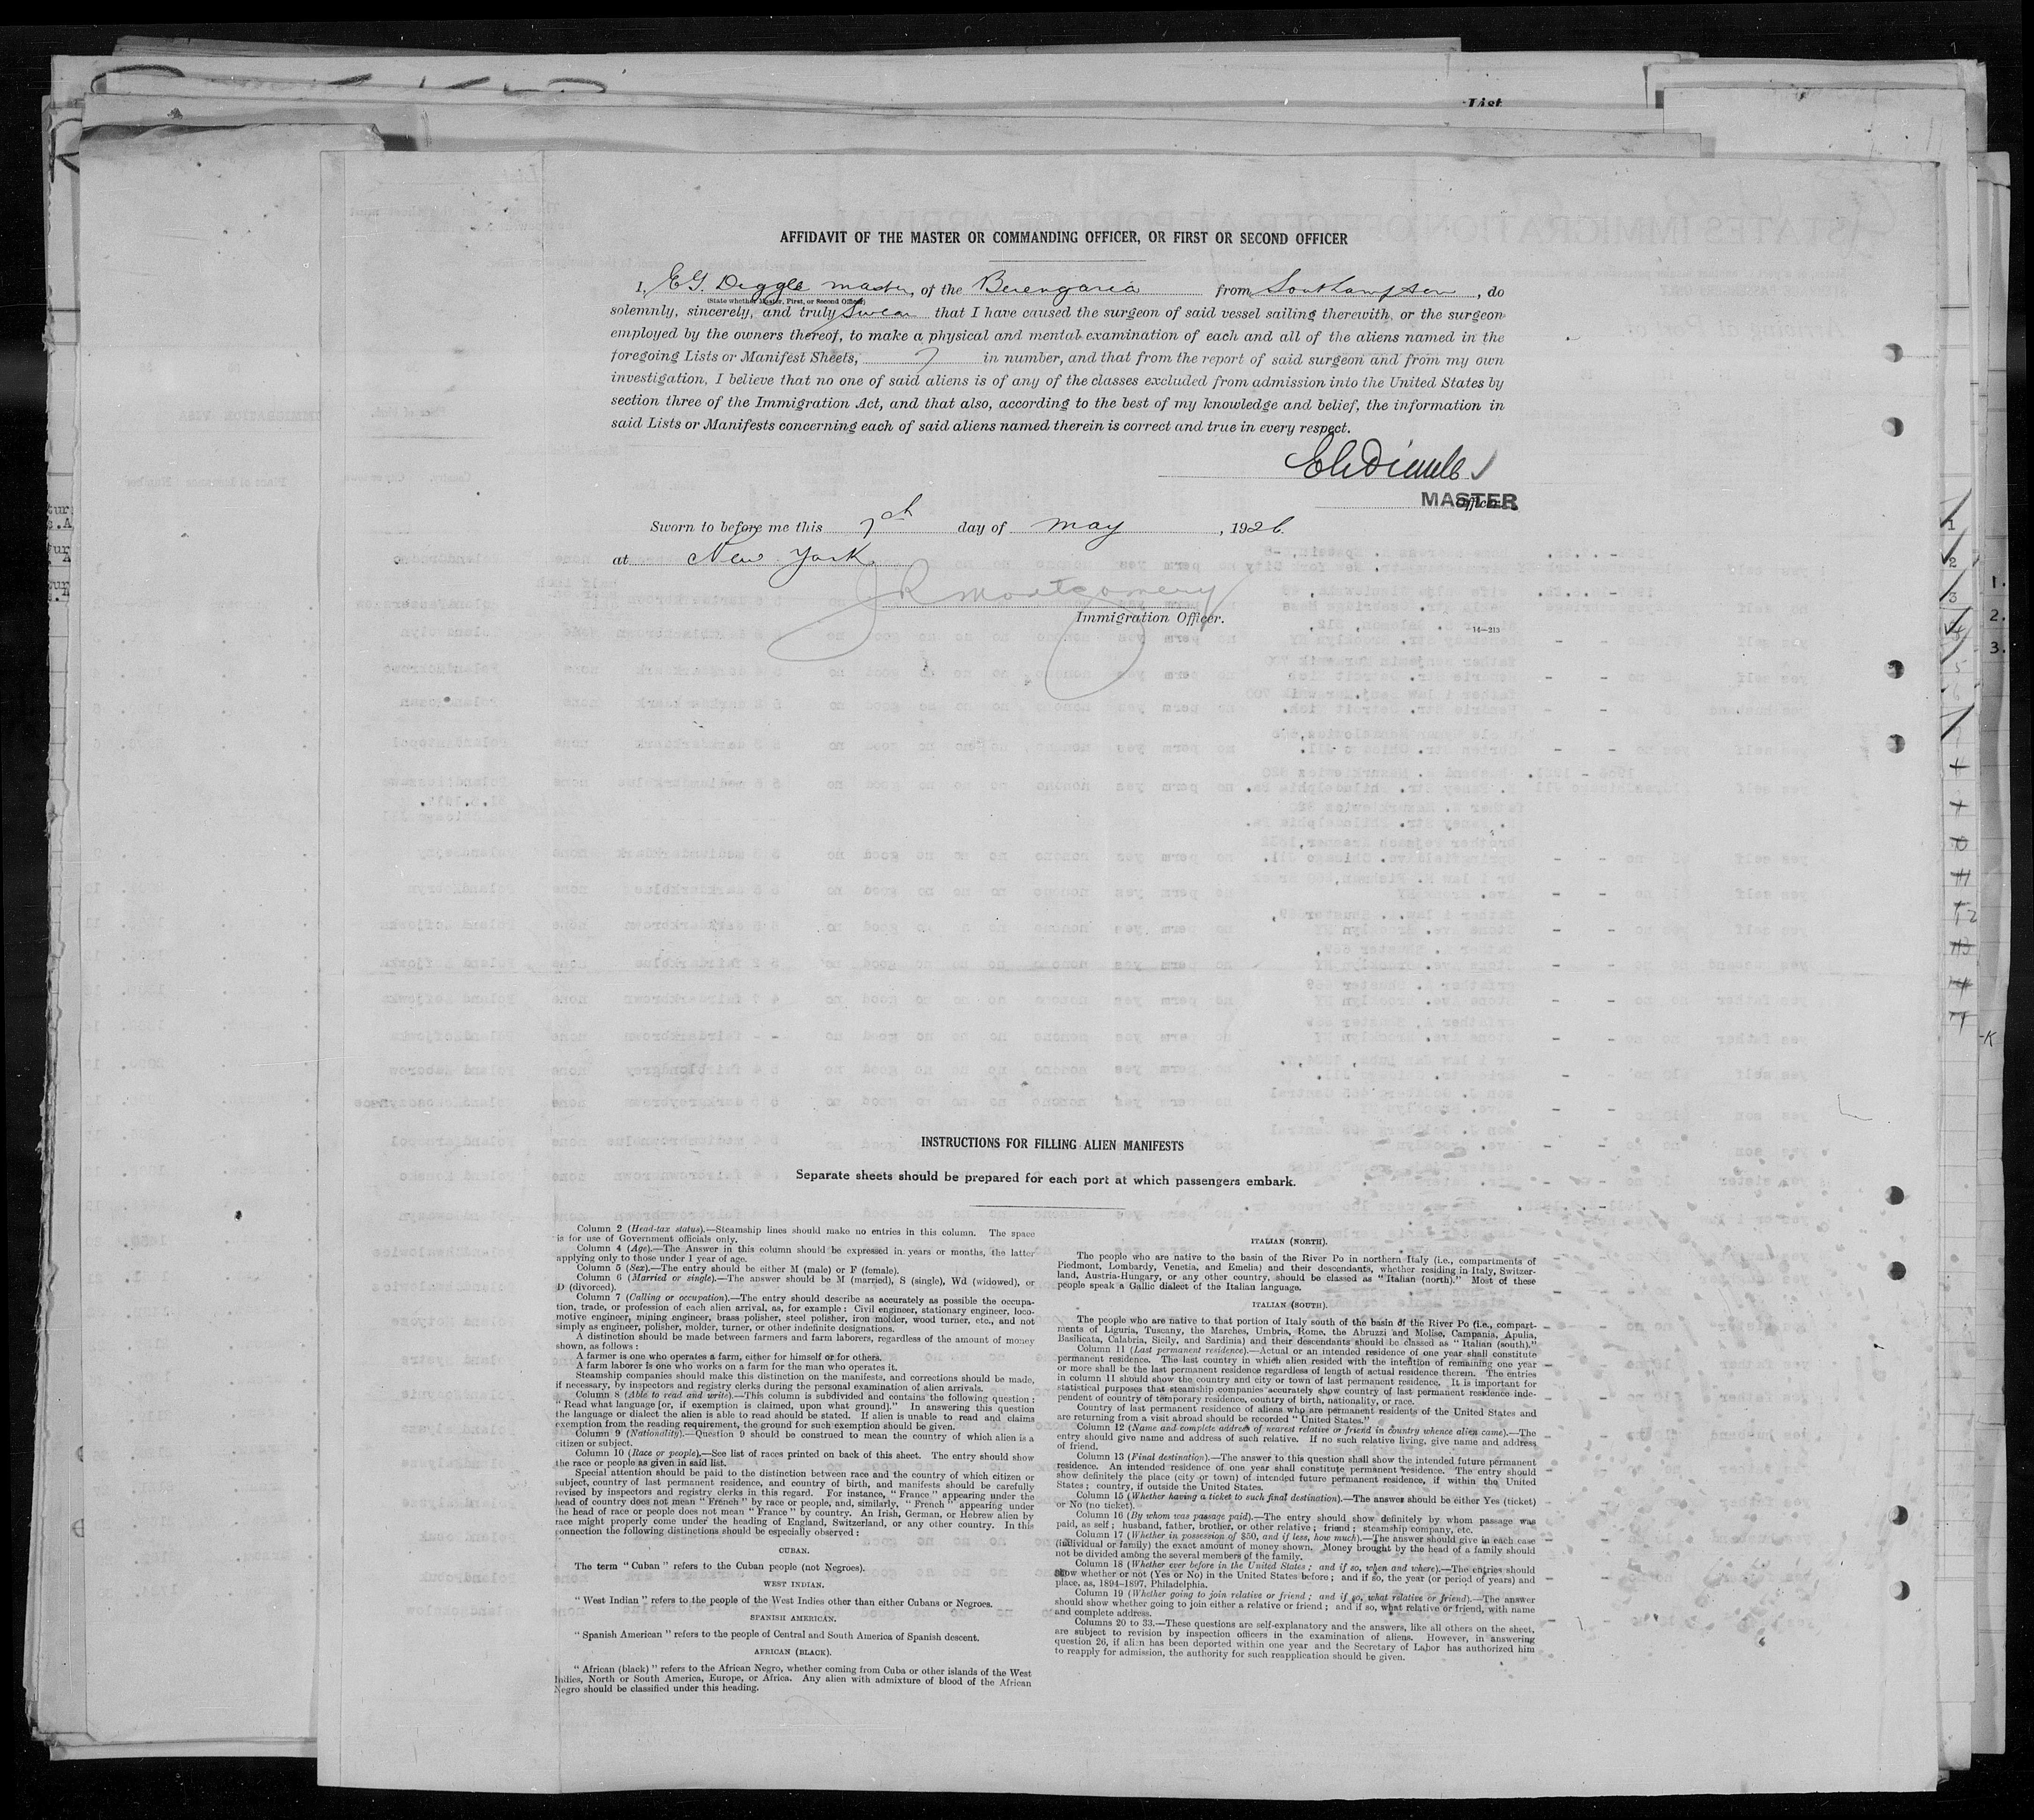 List
AFFIDAVIT OF THE MASTER OR COMMANDING OFFICER, OR FIRST OR SECOND OFFICER
I, E.G. Diggle master, of the Berengaria from Southampton, do
(State whether Master, First, or Second Officer)
solemnly, sincerely, and truly swear that I have caused the surgeon of said vessel sailing therewith, or the surgeon
employed by the owners thereof, to make a physical and mental examination of each and all of the aliens named in the
foregoing Lists or Manifest Sheets, 7 in number, and that from the report of said surgeon and from my own
investigation, I believe that no one of said aliens is of any of the classes excluded from admission into the United States by
section three of the Immigration Act, and that also, according to the best of my knowledge and belief, the information in
said Lists or Manifests concerning each of said aliens named therein is correct and true in every respect.
MASTER
Officer.
Sworn to before me this 7th day of May, 1926.
at New York.
J R Montgomery
Immigration Officer.
14—213
INSTRUCTIONS FOR FILLING ALIEN MANIFESTS
Separate sheets should be prepared for each port at which passengers embark.
Column 2 (Head-tax status).—Steamship lines should make no entries in this column. The space
is for use of Government officials only.
Column 4 (Age).—The Answer in this column should be expressed in years or months, the latter
applying only to those under 1 year of age.
Column 5 (Sex).—The entry should be either M (male) or F (female).
Column 6 (Married or single).—The answer should be M (married), S (single), Wd (widowed), or
D (divorced).
Column 7 (Calling or occupation).—The entry should describe as accurately as possible the occupa-
tion, trade, or profession of each alien arrival, as, for example: Civil engineer, stationary engineer, loco-
motive engineer, mining engineer, brass polisher, steel polisher, iron molder, wood turner, etc., and not
simply as engineer, polisher, molder, turner, or other indefinite designations.
A distinction should be made between farmers and farm laborers, regardless of the amount of money
shown, as follows:
A farmer is one who operates a farm, either for himself or for others.
A farm laborer is one who works on a farm for the man who operates it.
Steamship companies should make this distinction on the manifests, and corrections should be made,
if necessary, by inspectors and registry clerks during the personal examination of alien arrivals.
Column 8 (Able to read and write).—This column is subdivided and contains the following question:
"Read what language [or, if exemption is claimed, upon what ground]." In answering this question
the language or dialect the alien is able to read should be stated. If alien is unable to read and claims
exemption from the reading requirement, the ground for such exemption should be given.
Column 9 (Nationality).—Question 9 should be construed to mean the country of which alien is a
citizen or subject.
Column 10 (Race or people).—See list of races printed on back of this sheet. The entry should show
the race or people as given in said list.
Special attention should be paid to the distinction between race and the country of which citizen or
subject, country of last permanent residence, and country of birth, and manifests should be carefully
revised by inspectors and registry clerks in this regard. For instance, "France" appearing under the
head of country does not mean "French" by race or people, and, similarly, "French" appearing under
the head of race or people does not mean "France" by country. An Irish, German, or Hebrew alien by
race might properly come under the heading of England, Switzerland, or any other country. In this
connection the following distinctions should be especially observed:
CUBAN.
The term "Cuban" refers to the Cuban people (not Negroes).
WEST INDIAN.
"West Indian" refers to the people of the West Indies other than either Cubans or Negroes.
SPANISH AMERICAN.
"Spanish American" refers to the people of Central and South America of Spanish descent.
AFRICAN (BLACK).
"African (black)" refers to the African Negro, whether coming from Cuba or other islands of the West
Indies, North or South America, Europe, or Africa. Any alien with admixture of blood of the African
Negro should be classified under this heading.
ITALIAN (NORTH).
The people who are native to the basin of the River Po in northern Italy (i.e., compartments of
Piedmont, Lombardy, Venetia, and Emelia) and their descendants, whether residing in Italy, Switzer-
land, Austria-Hungary, or any other country, should be classed as "Italian (north)." Most of these
people speak a Gallic dialect of the Italian language.
ITALIAN (SOUTH).
The people who are native to that portion of Italy south of the basin of the River Po (i.e., compart-
ments of Liguria, Tuscany, the Marches, Umbria, Rome, the Abruzzi and Molise, Campania, Apulia,
Basilicata, Calabria, Sicily, and Sardinia) and their descendants should be classed as "Italian (south)."
Column 11 (Last permanent residence).—Actual or an intended residence of one year shall constitute
permanent residence. The last country in which alien resided with the intention of remaining one year
or more shall be the last permanent residence regardless of length of actual residence therein. The entries
in column 11 should show the country and city or town of last permanent residence. It is important for
statistical purposes that steamship companies accurately show country of last permanent residence inde-
pendent of country of temporary residence, country of birth, nationality, or race.
Country of last permanent residence of aliens who are permanent residents of the United States and
are returning from a visit abroad should be recorded "United States."
Column 12 (Name and complete address of nearest relative or friend in country whence alien came).—The
entry should give name and address of such relative. If no such relative living, give name and address
of friend.
Column 13 (Final destination).—The answer to this question shall show the intended future permanent
residence. An intended residence of one year shall constitute permanent residence. The entry should
show definitely the place (city or town) of intended future permanent residence, if within the United
States; country, if outside the United States.
Column 15 (Whether having a ticket to such final destination).—The answer should be either Yes (ticket)
or No (no ticket).
Column 16 (By whom was passage paid).—The entry should show definitely by whom passage was
paid, as self; husband, father, brother, or other relative; friend; steamship company, etc.
Column 17 (Whether in possession of $50, and if less, how much).—The answer should give in each case
(individual or family) the exact amount of money shown. Money brought by the head of a family should
not be divided among the several members of the family.
Column 18 (Whether ever before in the United States; and if so, when and where).—The entries should
show whether or not (Yes or No) in the United States before; and if so, the year (or period of years) and
place, as, 1894–1897, Philadelphia.
Column 19 (Whether going to join relative or friend; and if so, what relative or friend).—The answer
should show whether going to join either a relative or friend; and if so, what relative or friend, with name
and complete address.
Columns 20 to 33.—These questions are self-explanatory and the answers, like all others on the sheet,
are subject to revision by inspection officers in the examination of aliens. However, in answering
question 26, if alien has been deported within one year and the Secretary of Labor has authorized him
to reapply for admission, the authority for such reapplication should be given.